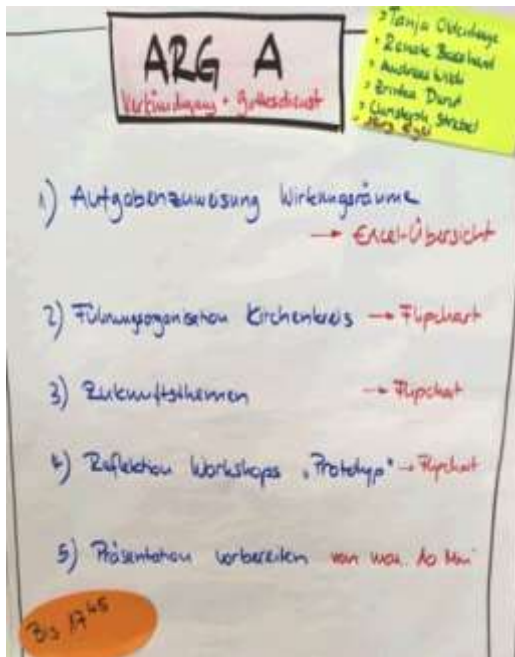 ARG A
Verkündigung + Gottesdienst
• Tanja
• Renate
• Andreas
• Christoph Strebel
1) Aufgabenzuweisung Wirkungsräume
→ Excel-Übersicht
2) Führungsorganisation Kirchenkreis → Flipchart
3) Zukunftsthemen → Flipchart
4) Reflektion Workshops "Prototyp" → Flipchart
5) Präsentation vorbereiten von max. 10 Min
Bis 17⁴⁵